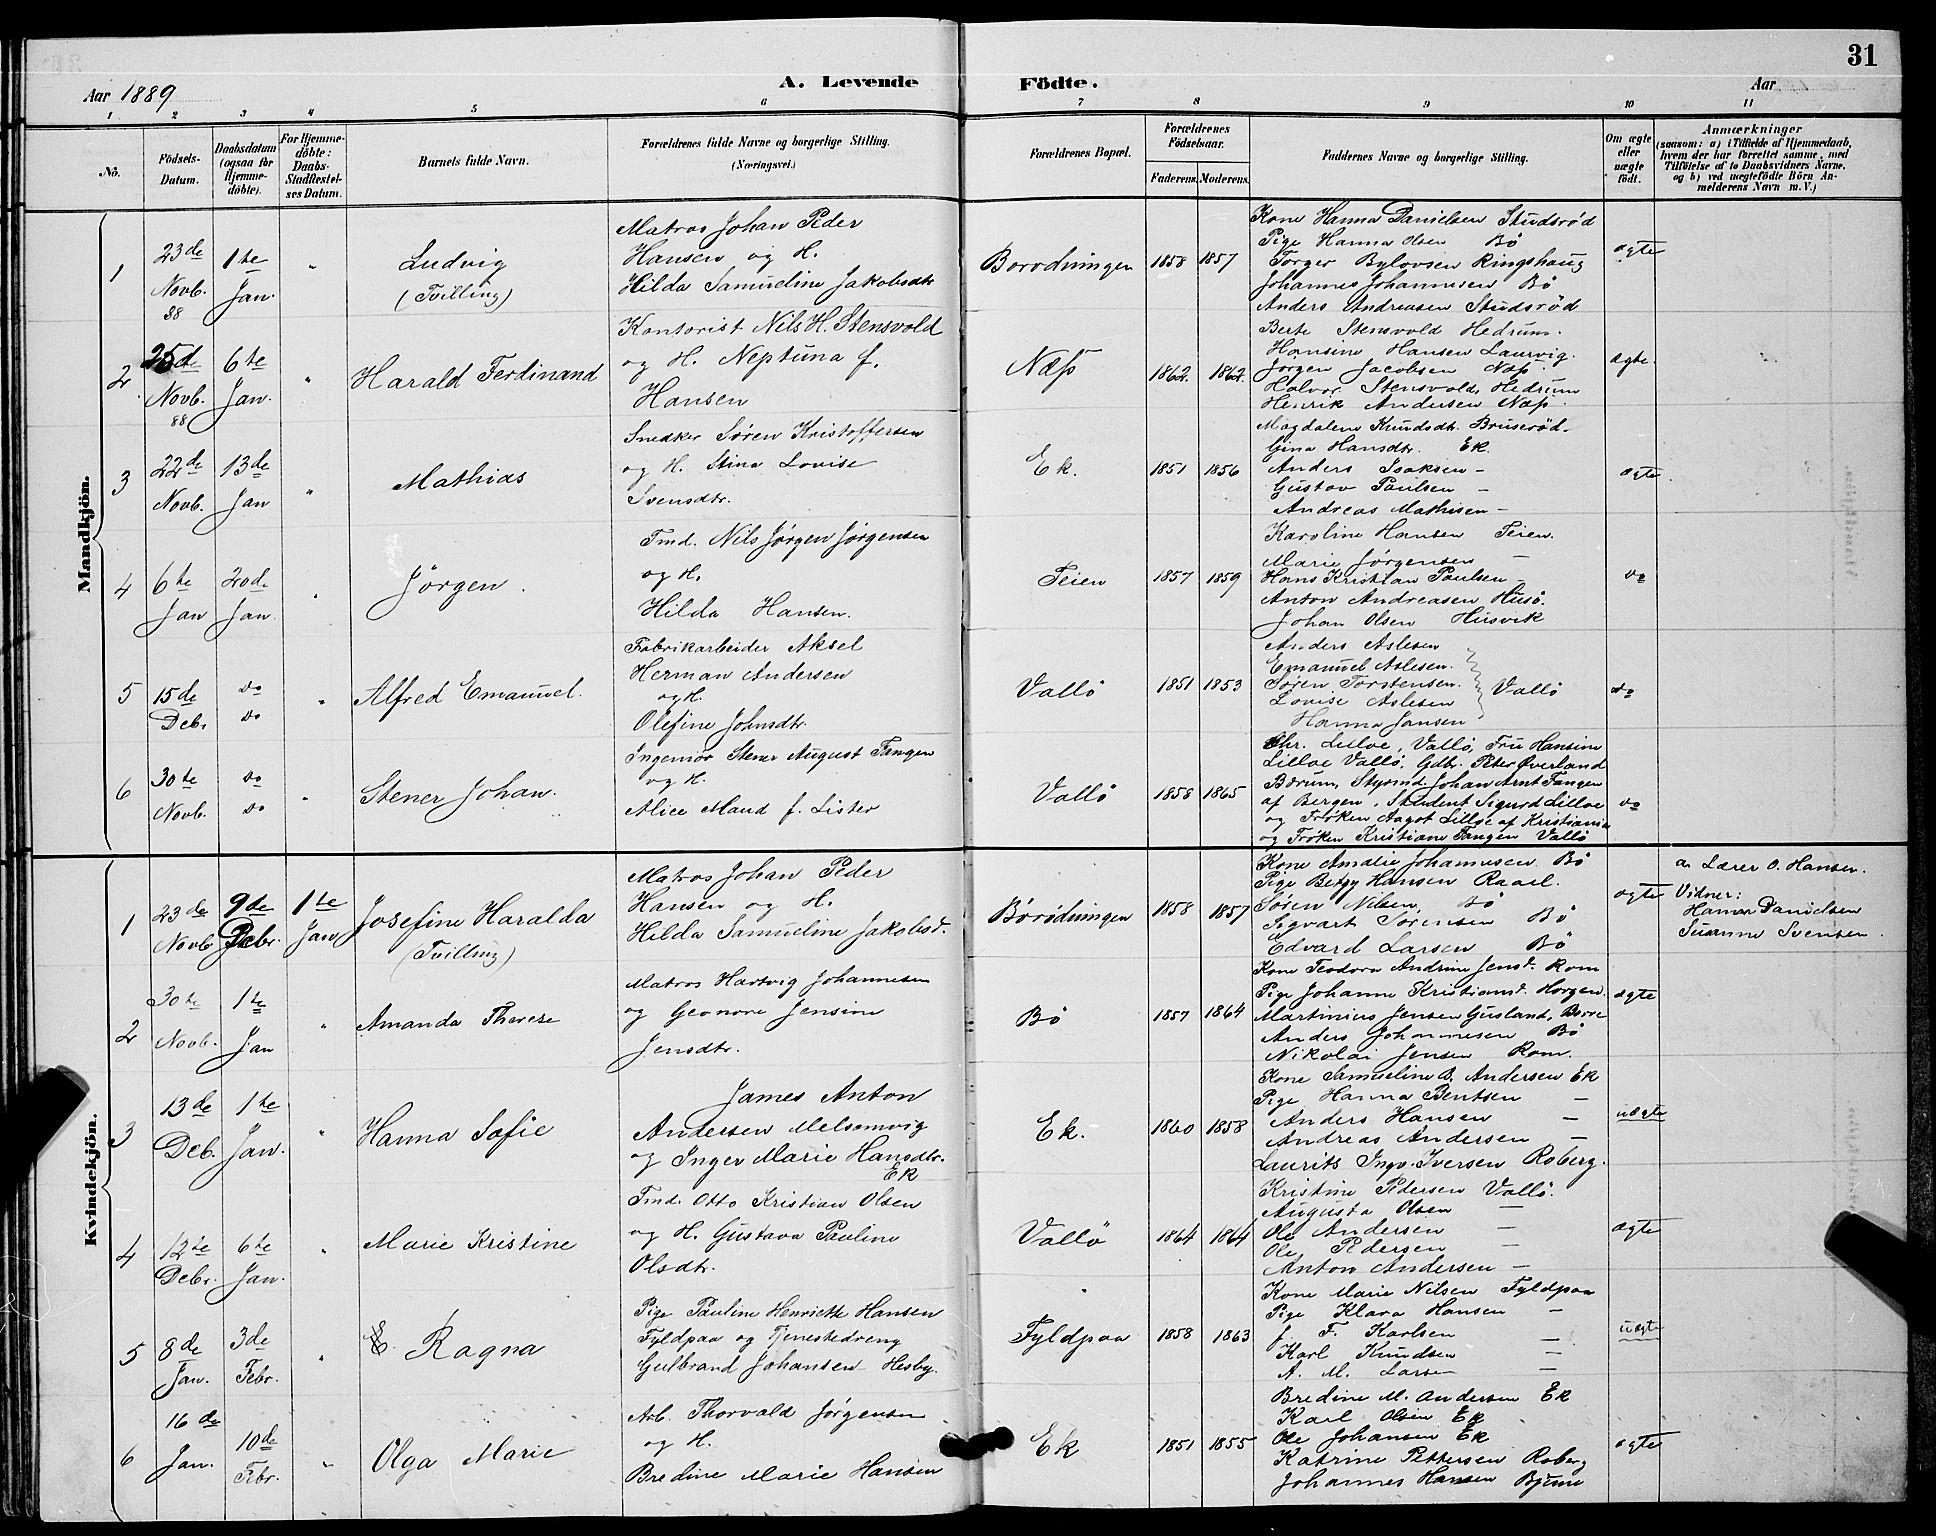 31
Aar 1889
A. Levende
Födte.
Aar
1 2 3 4 5 6 7 8 9 10 11
No.
Födsels-Datum.
Daabsdatum (ogsaa for Hjemme-döbte).
For Hjemme-döbte: Daabs-Stadfæstel-ses Datum.
Barnets fulde Navn.
Forældrenes fulde Navne og borgerlige Stilling.
(Næringsvei.)
Forældrenes Bopæl.
Forældrenes Födselsaar.
Faderens. Moderens.
Faddernes Navne og borgerlige Stilling.
Om ægte eller uægte født.
Anmærkninger
(saasom: a) i Tilfælde af Hjemmedaab,
hvem der har forrettet samme, med
Tilföielse af to Daabsvidners Navne,
og b) ved uægtefödte Börn An-
melderens Navn m. V.)
Mandkjön.
1
23de Novb. 88
1te Jan.
"
Ludvig
(Tvilling)
Matros Johan Peder
Hansen og H.
Hilda Samueline Jakobsdtr
Borodningen
1858 1857
Kone Hanna Danielsen Studsrød
Pige Hanna Olsen Bö
Torger Bylovsen Ringshaug
Johannes Johannesen Bö
Anders Andreasen Studsrød
ægte
2
25d Novb. 88
6te Jan.
"
Harald Ferdinand
Kontorist Nils H. Stensvold
og H. Neptuna f.
Hansen
Næss
1862. 1862.
Berte Stensvold Hedrum.
Hansine Hansen Laurvig.
Jörgen Jacobsen Næss.
Halvor Stensvold, Hedrum
Henrik Andersen Næss.
ægte.
3
22de Novb.
13de Jan
"
Mathias
Snedker Sören Kristoffersen
og H. Stina Lovise
Svensdtr.
Ek.
1851 1856
Magdalene Knudsdt. Bruserød
Gina Hansdtr. Ek.
Anders Isaksen -
Gustav Paulsen -
Andreas Mathisen -
ægte.
4
6te Jan
20de Jan.
"
Jörgen.
Tmd. Nils Jörgen Jörgensen
og H.
Hilda Hansen.
Teien
1857 1859
Karoline Hansen Teien.
Marie Jörgensen -
Hans Kristian Paulsen
Anton Andreasen Husö.
Johan Olsen Husvik
do
5
15de Debr.
do do
"
Alfred Emanuel.
Fabrikarbeider Aksel
Herman Andersen
og H.
Olefine Johnsdtr.
Vallö
1851 1853
Anders Aslesen
Emanuel Aslesen.
Sören Torstensen.
Lovise Aslesen
Hanna Jansen
Vallö
do
6
30te Novb.
do do
"
Stener Johan.
Ingeniör Stener August Tangen
og H.
Alice Maud f. Lister
Vallö
1858 1865
Chr. Lilloe, Vallö, Fru Hansine
Lilloe Vallö, Gdbr. Peter Överland
Bærum, Styrmd. Johan Arnt Tangen
af Bergen, Student Sigurd Lilloe
og Fröken Aagot Lilloe af Kristiania
og Fröken Kristiane Tangen Vallö
do
Kvindekjön.
1
23de Novb
9de Debr.
1te Jan
Josefine Haralda
(Tvilling)
Matros Johan Peder
Hansen og H.
Hilda Samueline Jakobsd.
Börödningen
1858 1857
Kone Amalie Johannesen. Bö
Pige Betzy Hansen Raael.
Sören Nilsen Bö
Sigvart Sörensen Bö
Edvard Larsen Bö
ægte
a. Lærer O. Hansen.
Vidner:
Hanna Danielsen
Susanne Svensen.
2
30te Novb.
1te Jan
"
Amanda Therese
Matros Hartvig Johannesen
og Geonore Jensine
Jensdtr.
Bö
1857 1864
Kone Teodora Andrine Jensd. Rom
Pige Johanne Kristiansd. Horgen.
Martinius Jensen Gusland, Borre
Anders Johannesen Bö
Nikolai Jensen Rom.
ægte
3
13de Deb.
1te Jan.
"
Hanna Sofie
James Anton
Andersen Melsomvig
og Inger Marie Hansdtr.
Ek
Ek.
1860 1858
Kone Samueline B. Andersen Ek
Pige Hanna Bentsen -
Anders Hansen -
Andreas Andersen -
Laurits Ingv. Iversen Roberg.
uægte
4
12te Debr.
6te Jan.
"
Marie Kristine
Tmd. Otto Kristian Olsen
og H. Gustava Pauline
Olsdtr.
Vallö
1864 1864
Kristine Pedersen Vallö.
Augusta Olsen -
Ole Andersen -
Ole Pedersen -
Anton Andersen -
ægte
5
8de Jan.
3de Febr.
"
Ragna
Pige Pauline Henriette Hansen
Fyldpaa og Tjenestedreng
Gulbrand Johansen Hesby.
Fyldpaa
1858 1863
Kone Marie Nilsen Fyldpaa
Pige Klara Hansen -
J. F. Karlsen -
Karl Knudsen -
A. M. Larsen -
uægte
6
16de Jan.
10de Febr.
"
Olga Marie
Arb. Thorvald Jörgensen
og H.
Bredine Marie Hansen
Ek
1851 1855
Bredine M. Andersen Ek
Karl Olsen Ek
Ole Johansen Ek
Katrine Pettersen Roberg
Johannes Hansen Bjune
ægte